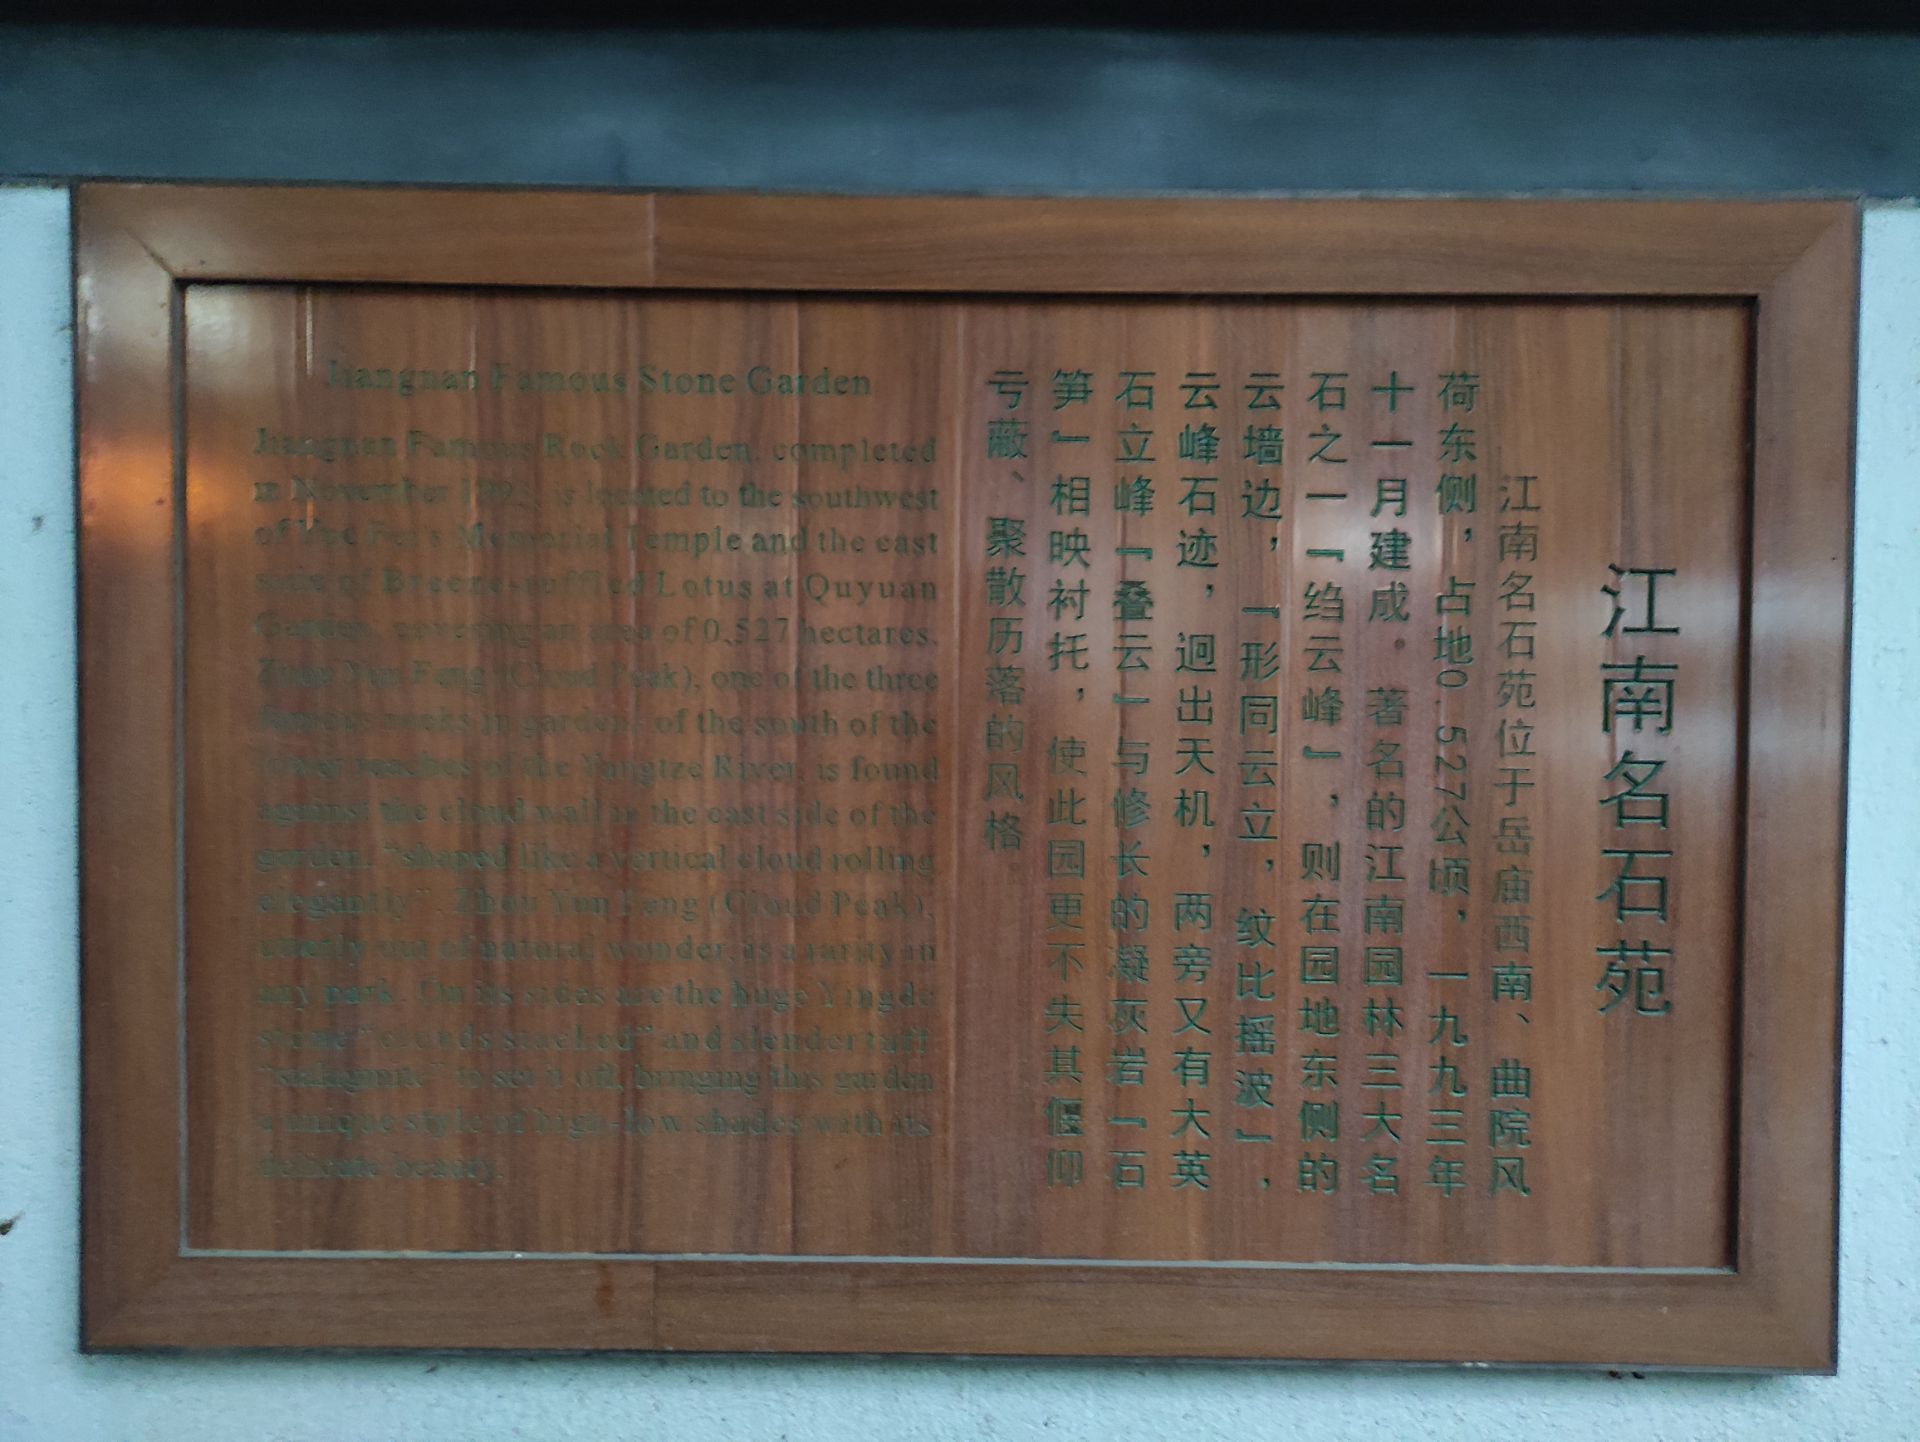 江南名石苑
江南名石苑位于岳庙西南、曲院风
荷东侧，占地0.527公顷，一九九三年
十一月建成。著名的江南园林三大名
石之一『绉云峰』，则在园地东侧的
云墙边，『形同云立，纹比摇波』，
云峰石迹，迥出天机，两旁又有大英
石立峰『叠云』与修长的凝灰岩『石
笋』相映衬托，使此园更不失其偃仰
亏蔽、聚散历落的风格。
Jiangnan Famous Stone Garden
Jiangnan Famous Rock Garden, completed
in November 1993, is located to the southwest
of Yue Fei's Memorial Temple and the east
side of Breeze-ruffled Lotus at Quyuan
Garden, covering an area of 0.527 hectares.
Zhou Yun Feng (Cloud Peak), one of the three
famous rocks in gardens of the south of the
lower reaches of the Yangtze River, is found
against the cloud wall in the east side of the
garden, "shaped like a vertical cloud rolling
elegantly". Zhou Yun Feng (Cloud Peak),
utterly out of natural wonder, is a rarity in
any park. On its sides are the huge Yingde
stone "clouds stacked" and slender tuff
"stalagmite" to set it off, bringing this garden
a unique style of high-low shades with its
delicate beauty.